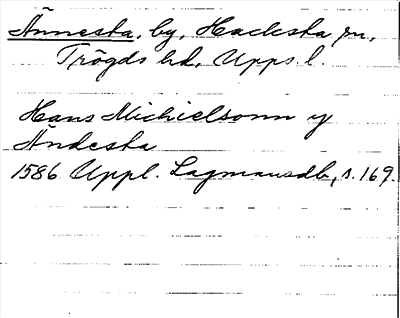 Ännesta, by, Hacksta sn,
Trögds hd, Upps. l.
Hans Michielsonn y
Ändesta
1586 Uppl. Lagmansdb, s. 169.